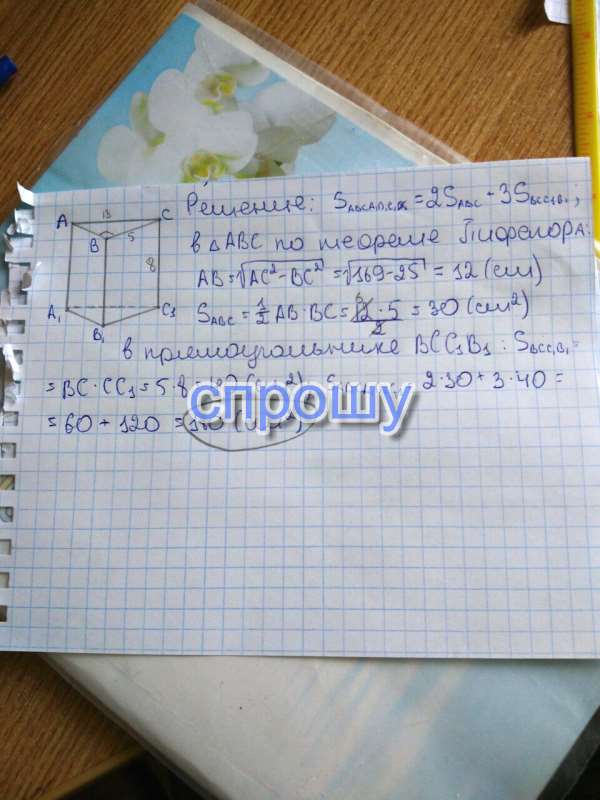 A 13 C
B 5
8
A₁ C₁
B₁
Решение: S = 2S_ABC + 3S ;
в △ABC по теореме Пифагора:
AB = √AC² - BC² = √169-25 = 12 (см)
S_ABC = 1/2 AB · BC = 12 · 5 / 2 = 30 (см²)
в прямоугольнике BCC₁B₁ : S_BCC₁B₁ =
= BC · CC₁ = 5 · 8 2 · 30 + 3 · 40 =
= 60 + 120 = 180
спрошу